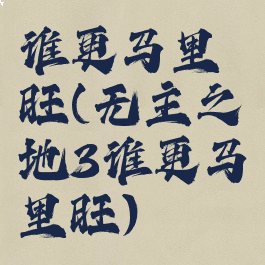 谁更马里
旺(无主之
地3谁更马
里旺)